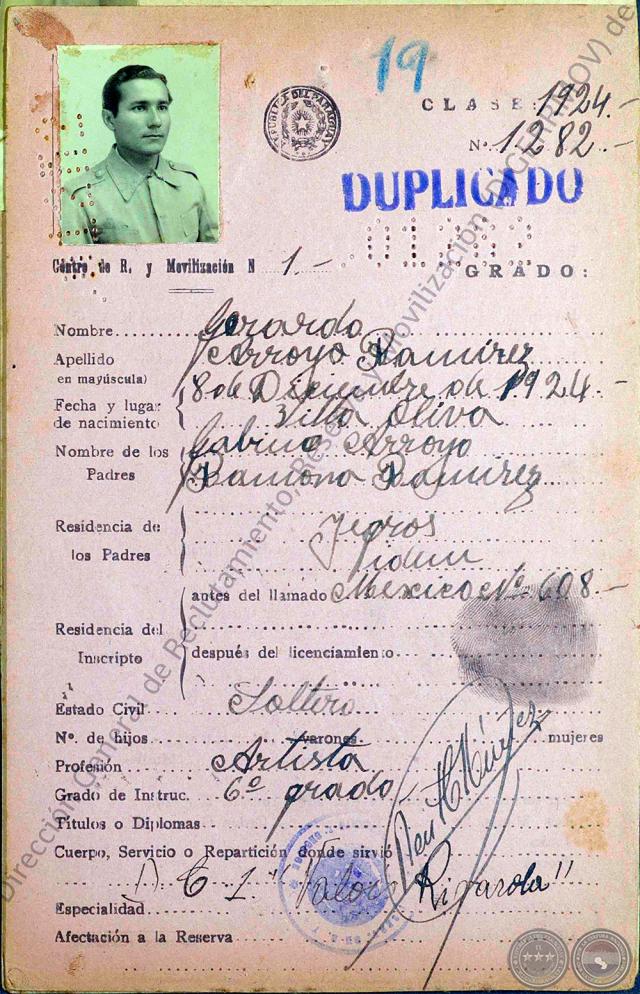 19
CLASE: 1924.-
Nº 1282.-
REPUBLICA DEL PARAGUAY
DUPLICADO
Centro de R. y Movilización N 1.-
GRADO:
Nombre Gerardo
Apellido Arroyo Ramirez
en mayúscula)
8 de Diciembre de 1924-
Fecha y lugar
de nacimiento Villa Oliva
Nombre de los Gabino Arroyo
Padres Ramona Ramirez
Residencia de Yegros
los Padres Idem
antes del llamado Mexico Nº 608-
Residencia del
Inscripto después del licenciamiento
Estado Civil Soltero
Nº. de hijos varones mujeres
Profesión Artista
Grado de Instruc. 6º grado
Títulos o Diplomas
Cuerpo, Servicio o Repartición donde sirvió
"Valois Rivarola"
Especialidad
Afectación a la Reserva
Dirección General de Reclutamiento, Reserva y Movilización (DIGERRMOV) de